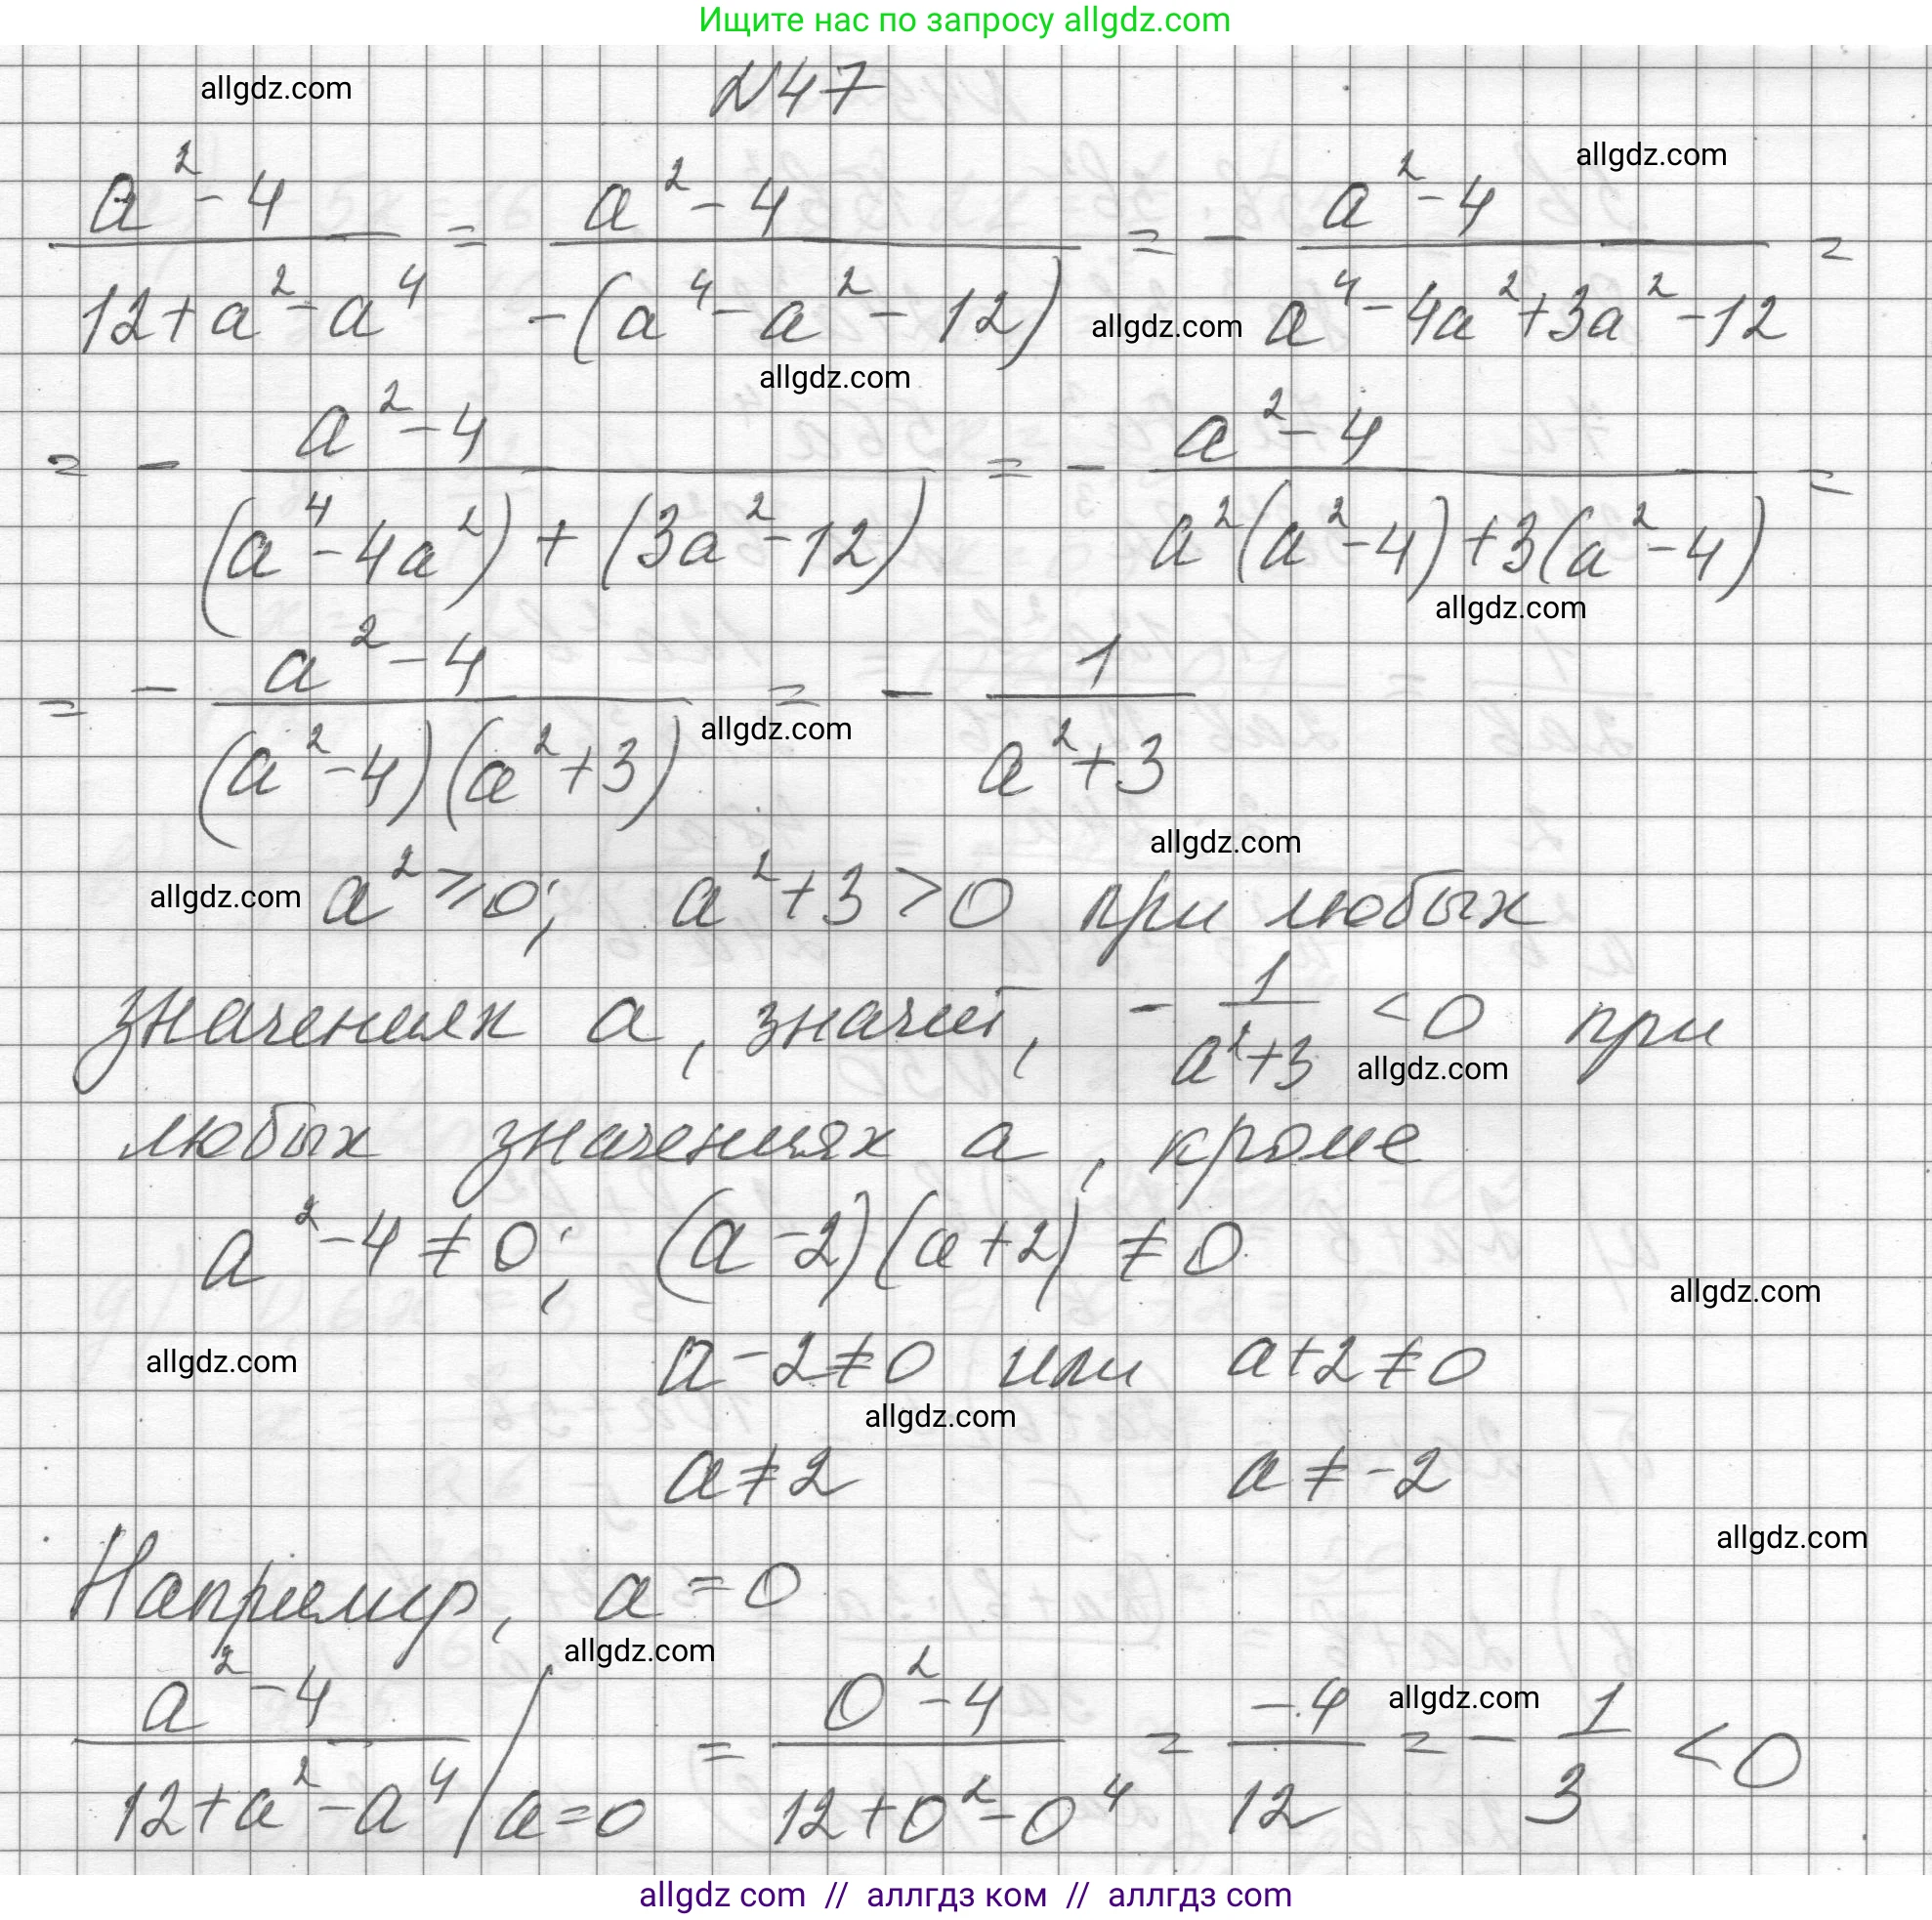 Ищите нас по запросу allgdz.com
allgdz.com
№47
allgdz.com
(a²-4)/(12+a²-a⁴) = (a²-4)/(-(a⁴-a²-12)) = -(a²-4)/(a⁴-4a²+3a²-12) =
allgdz.com
allgdz.com
= -(a²-4)/((a⁴-4a²)+(3a²-12)) = -(a²-4)/(a²(a²-4)+3(a²-4)) =
allgdz.com
= -(a²-4)/((a²-4)(a²+3)) = -1/(a²+3)
allgdz.com
allgdz.com
allgdz.com
a²⩾0; a²+3>0 при любых
значениях a, значит, -1/(a²+3) <0 при
allgdz.com
любых значениях a, кроме
a²-4≠0; (a-2)(a+2)≠0
allgdz.com
allgdz.com
a-2≠0 или a+2≠0
allgdz.com
a≠2 a≠-2
allgdz.com
Например, a=0
allgdz.com
allgdz.com
(a²-4)/(12+a²-a⁴) / a=0 = (0²-4)/(12+0²-0⁴) = -4/12 = -1/3 <0
allgdz com // аллгдз ком // аллгдз com